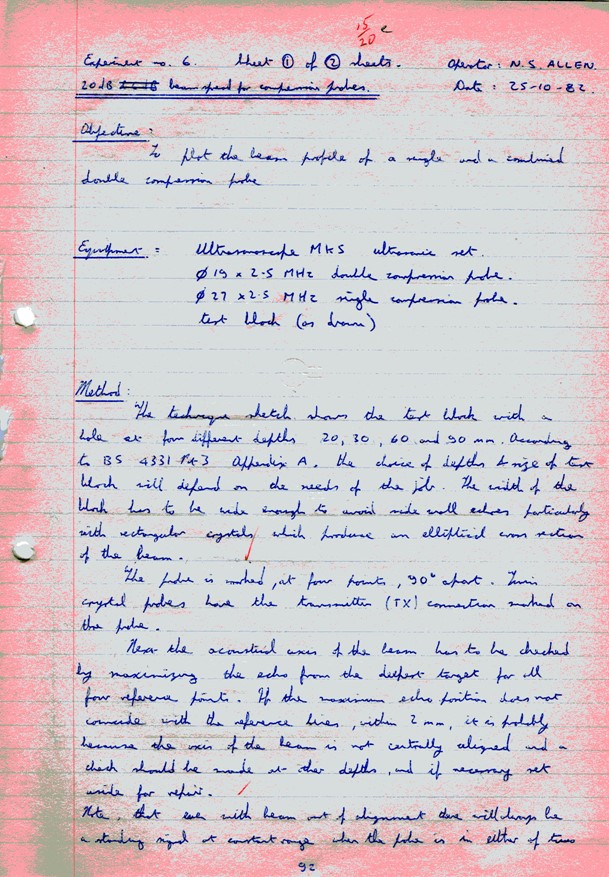 15/20
Experiment no. 6. Sheet ① of ② sheets. Operator: N.S. ALLEN.
20dB beam spread for compression probes. Date: 25-10-82.
Objective:
To plot the beam profile of a single and a combined
double compression probe
Equipment: Ultrasonoscope MK5 ultrasonic set.
Ø 19 x 2.5 MHz double compression probe.
Ø 27 x 2.5 MHz single compression probe.
test block (as drawn)
Method:
The technique sketch shows the test block with a
hole at four different depths 20, 30, 60 and 90 mm. According
to BS 4331 Pt 3 Appendix A. the choice of depths & size of test
block will depend on the needs of the job. The width of the
block has to be wide enough to avoid side wall echoes particularly
with rectangular crystals which produce an elliptical cross section
of the beam.
The probe is marked, at four points, 90° apart. Twin
crystal probes have the transmitter (TX) connection marked on
the probe.
Next the acoustical axis of the beam has to be checked
by maximizing the echo from the deepest target for all
four reference points. If the maximum echo position does not
coincide with the reference lines, within 2 mm, it is probably
because the axis of the beam is not centrally aligned and a
check should be made at other depths, and if necessary set
aside for repair.
Note, that even with beam out of alignment there will always be
a standing signal at constant range when the probe is in either of two
92